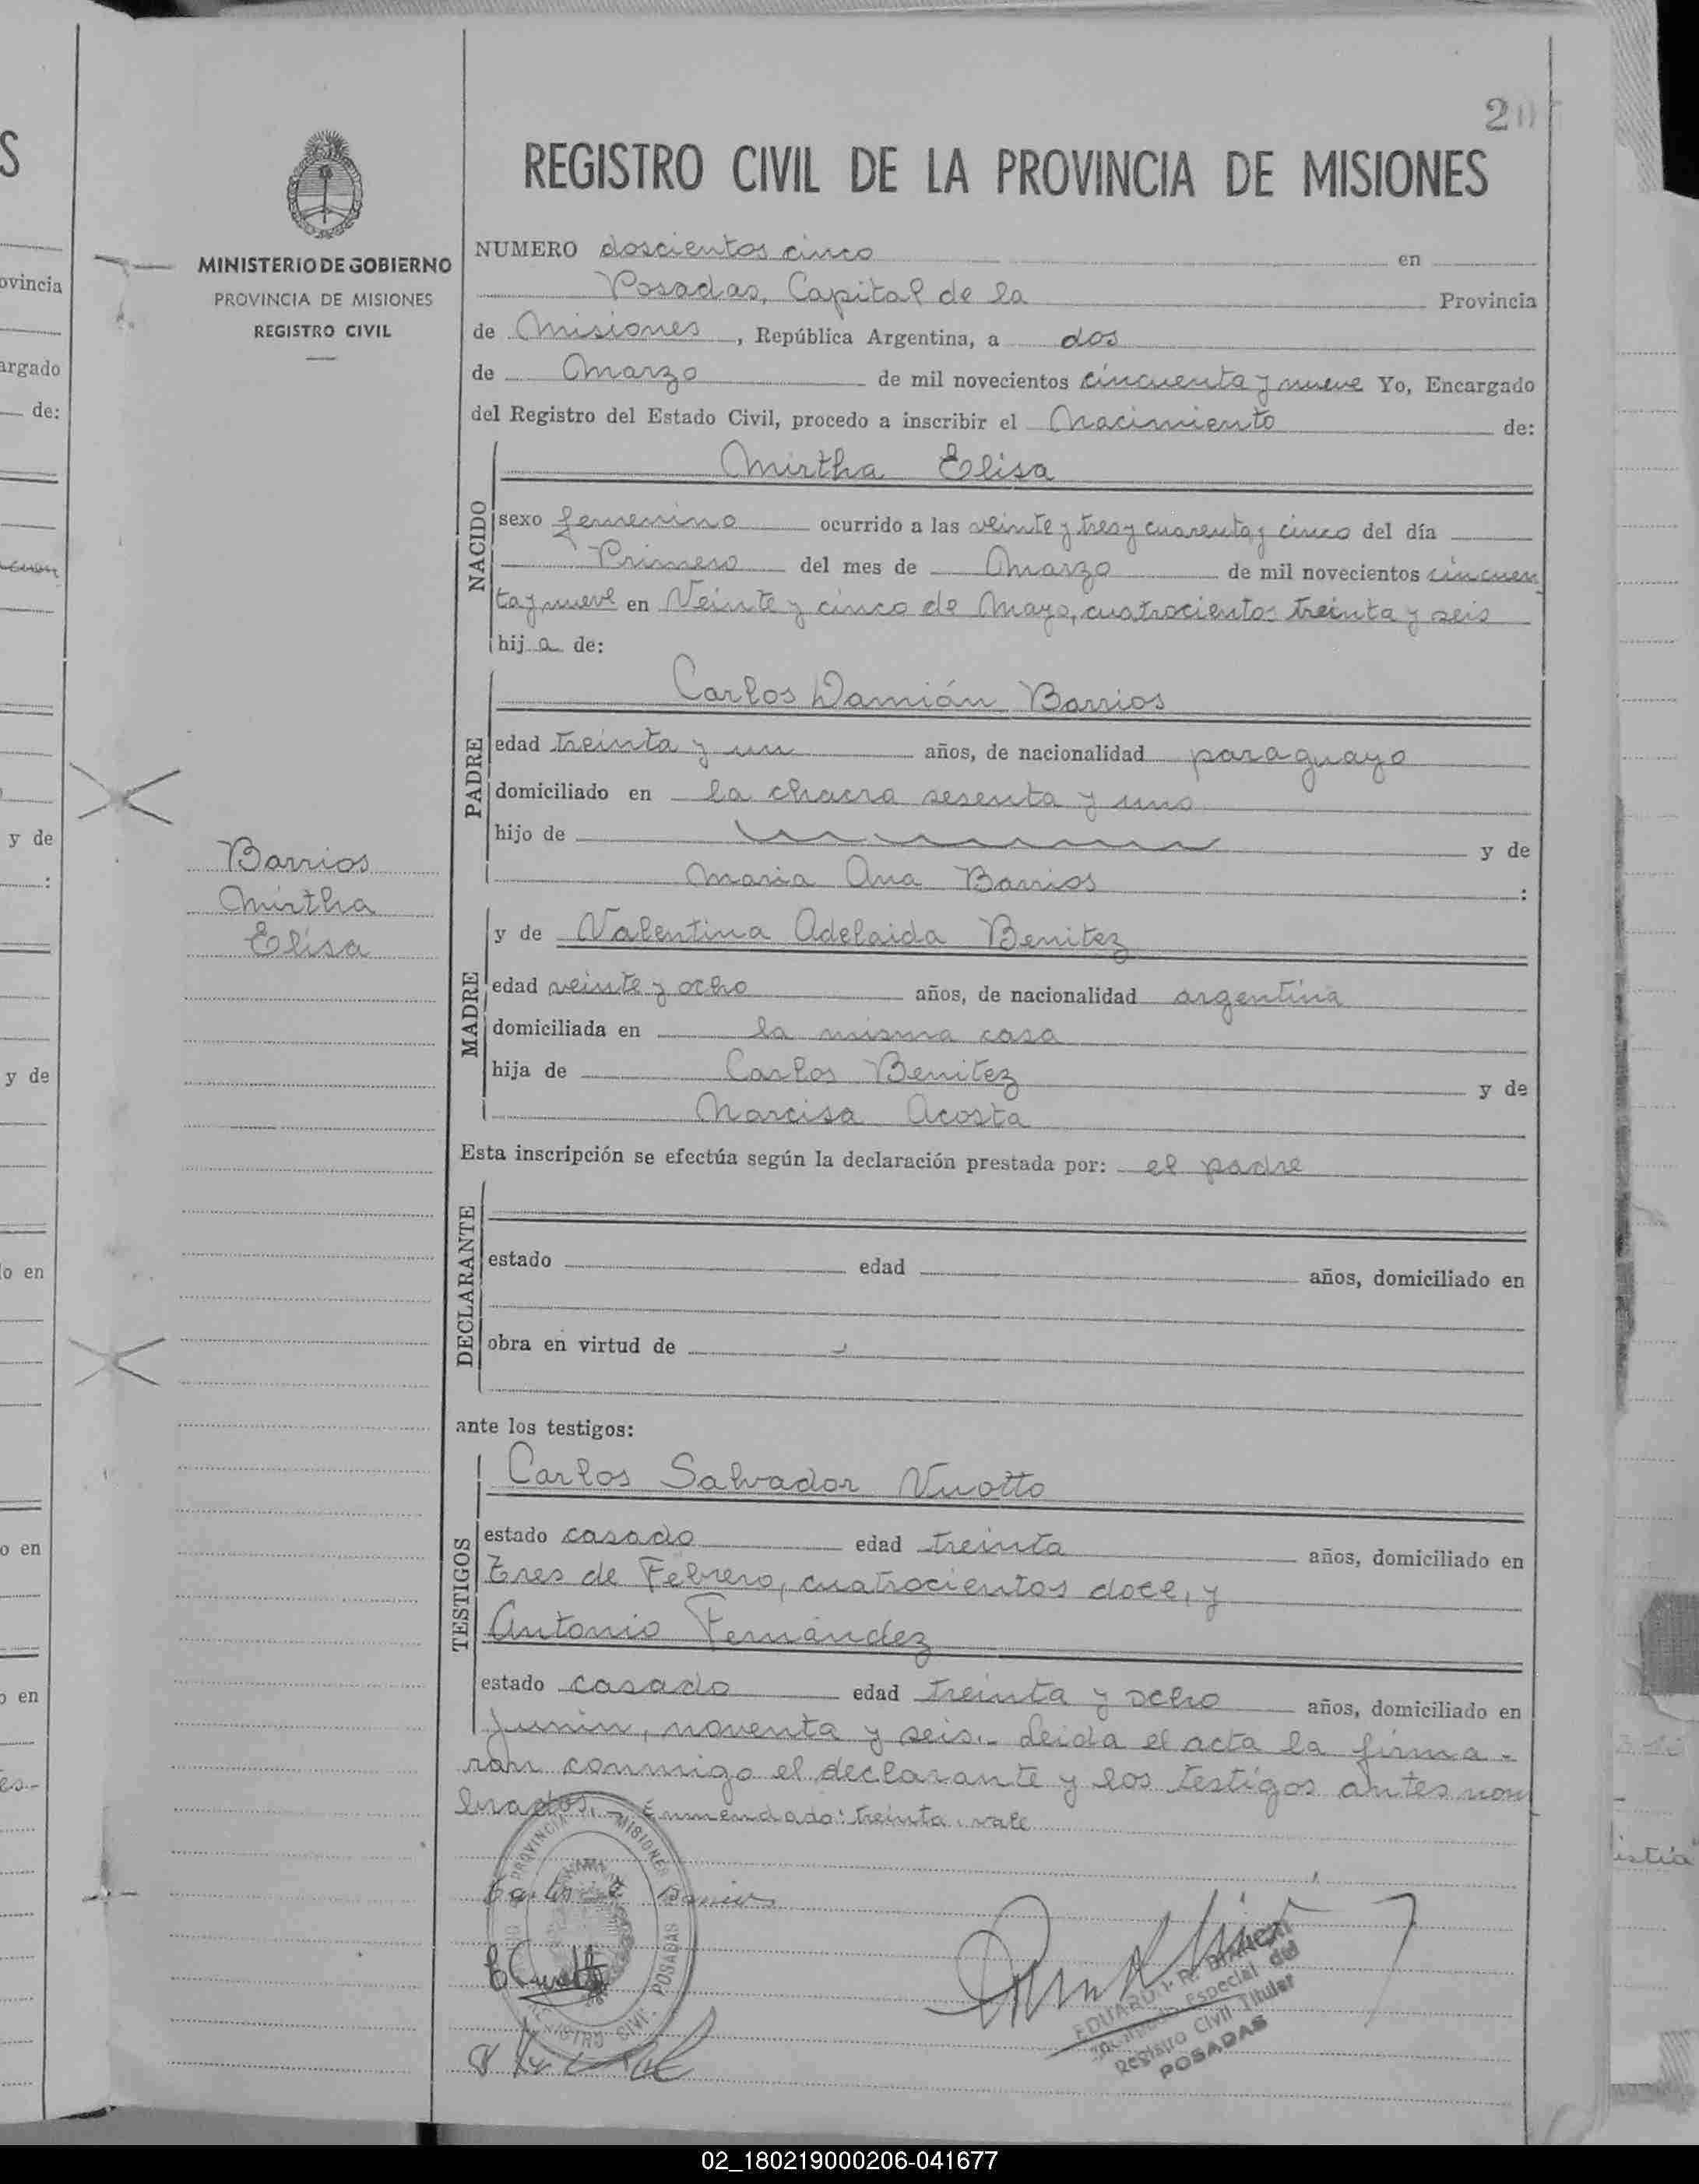 REGISTRO CIVIL DE LA PROVINCIA DE MISIONES
MINISTERIO DE GOBIERNO
PROVINCIA DE MISIONES
REGISTRO CIVIL
NUMERO doscientos cinco en
Posadas, Capital de la Provincia
de Misiones, República Argentina, a dos
de Marzo de mil novecientos cincuenta y nueve Yo, Encargado
del Registro del Estado Civil, procedo a inscribir el Nacimiento de:
Mirtha Elisa
NACIDO
sexo femenino ocurrido a las veinte y tres y cuarenta y cinco del día
Primero del mes de Marzo de mil novecientos cincuen
ta y nueve en Veinte y cinco de Mayo, cuatrocientos treinta y seis
hija de:
Carlos Damián Barrios
PADRE
edad treinta y un años, de nacionalidad paraguayo
domiciliado en la chacra sesenta y uno
hijo de y de
Maria Ana Barrios :
Barrios
Mirtha
Elisa
y de Valentina Adelaida Benitez
MADRE
edad veinte y ocho años, de nacionalidad argentina
domiciliada en la misma casa
hija de Carlos Benitez y de
Narcisa Acosta
Esta inscripción se efectúa según la declaración prestada por: el padre
DECLARANTE
estado edad años, domiciliado en
obra en virtud de
ante los testigos:
Carlos Salvador Vuotto
TESTIGOS
estado casado edad treinta años, domiciliado en
Tres de Febrero, cuatrocientos doce, y
Antonio Fernández
estado casado edad treinta y ocho años, domiciliado en
Junin, noventa y seis.- Leida el acta la firma-
ron conmigo el declarante y los testigos antes nom
brados.- Enmendado: treinta. vale
PROVINCIA MISIONES
REGISTRO CIVIL POSADAS
Barrios
EDUARDO R.
Encargado Especial del
Registro Civil Titular
POSADAS
S
ovincia
argado
de:
y de
:
y de
o en
o en
o en
02_180219000206-041677